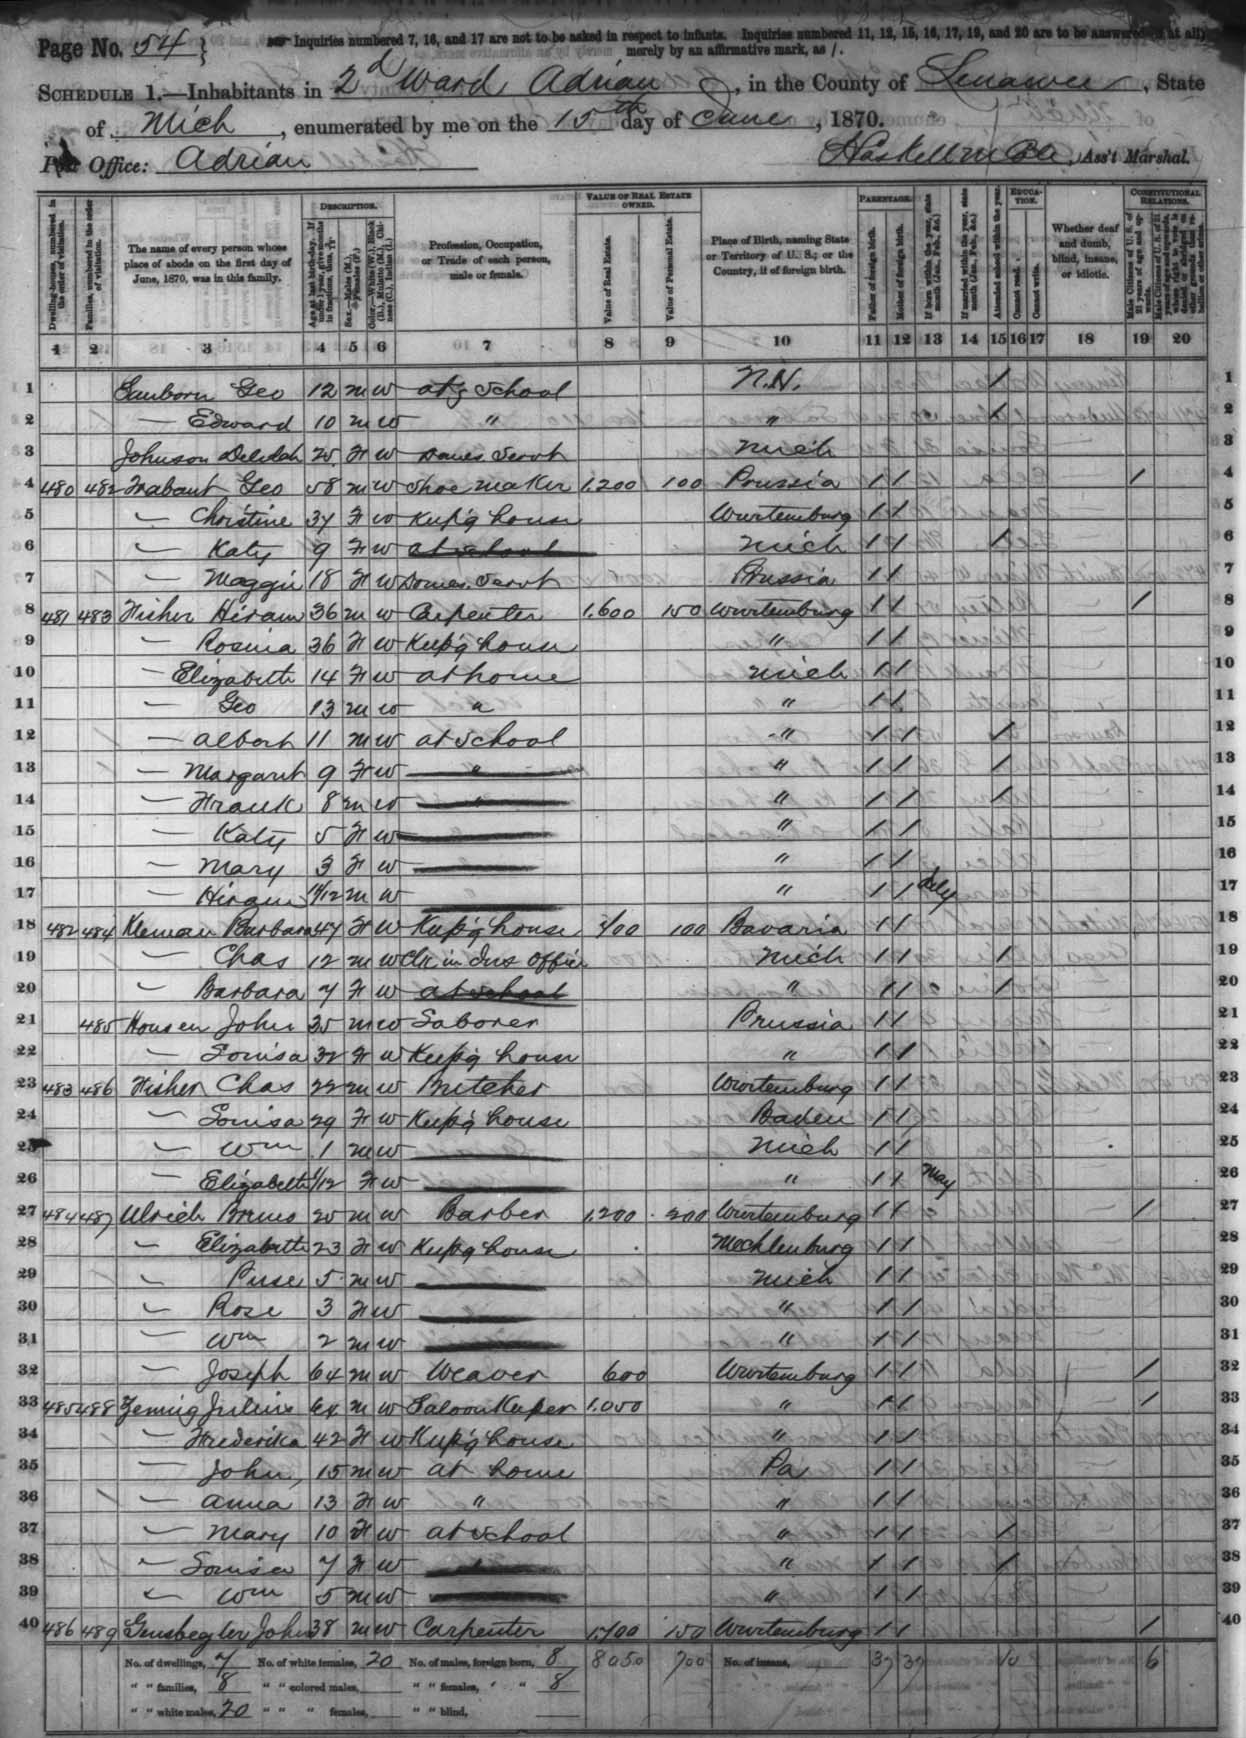 Page No. 54 } Inquiries numbered 7, 16, and 17 are not to be asked in respect to infants. Inquiries numbered 11, 12, 15, 16, 17, 19, and 20 are to be answered (if at all)
merely by an affirmative mark, as /.
SCHEDULE 1.—Inhabitants in 2d Ward Adrian, in the County of Lenawee, State
of Mich, enumerated by me on the 15th day of June, 1870.
Post Office: Adrian Ass't Marshal.
DESCRIPTION. VALUE OF REAL ESTATE OWNED. PARENTAGE. EDUCATION. CONSTITUTIONAL RELATIONS.
Dwelling-houses, numbered in the order of visitation. Families, numbered in the order of visitation. The name of every person whose place of abode on the first day of June, 1870, was in this family. Sex.—Males (M.), Females (F.) Profession, Occupation, or Trade of each person, male or female. Value of Real Estate. Value of Personal Estate. Place of Birth, naming State or Territory of U. S.; or the Country, if of foreign birth. Father of foreign birth. Mother of foreign birth. If born within the year, state month (Jan., Feb., &c.) If married within the year, state month (Jan., Feb., &c.) Attended school within the year. Cannot read. Cannot write. Whether deaf and dumb, blind, insane, or idiotic.
1 2 3 4 5 6 7 8 9 10 11 12 13 14 15 16 17 18 19 20
1 Sanborn Geo 12 m w at school N.H. / 1
2 — Edward 10 m w " " / 2
3 Johnson Delilah 25 F w Domes. Servt Mich 3
4 480 482 Trabant Geo 58 m w Shoe Maker 1,200 100 Prussia / / / 4
5 — Christine 37 F w Keep'g house Wurtemburg / / 5
6 — Katy 9 F w at school Mich / / / 6
7 — Maggie 18 F w Domes. Servt Prussia / / 7
8 481 483 Fisher Hiram 36 m w Carpenter 1,600 150 Wurtemburg / / / 8
9 — Rosina 36 F w Keep'g house " / / 9
10 — Elizabeth 14 F w at home Mich / / 10
11 — Geo 13 m w " " / / 11
12 — Albert 11 m w at School " / / / 12
13 — Margaret 9 F w " " / / / 13
14 — Frank 8 m w " " / / / 14
15 — Katy 5 F w " / / 15
16 — Mary 3 F w " / / 16
17 — Hiram 11/12 m w " / / July 17
18 482 484 Barbara 47 F w Keep'g house 700 100 Bavaria / / 18
19 — Chas 12 m w Clk in Ins Office Mich / / / 19
20 — Barbara 7 F w at School " / / / 20
21 485 Housen John 35 m w Laborer Prussia / / 21
22 — Louisa 32 F w Keep'g house " / / 22
23 483 486 Fisher Chas 22 m w Butcher Wurtemburg / / 23
24 — Louisa 29 F w Keep'g house Baden / / 24
25 — Wm 1 m w Mich / / 25
26 — Elizabeth 1/12 F w " / / May 26
27 484 487 Ulrich Bruno 25 m w Barber 1,200 200 Wurtemburg / / / 27
28 — Elizabeth 23 F w Keep'g house Mecklenburg / / 28
29 — 5 m w Mich / / 29
30 — Rose 3 F w " / / 30
31 — Wm 2 m w " / / 31
32 — Joseph 64 m w Weaver 600 Wurtemburg / / / 32
33 485 488 Julius 64 m w Saloon Keeper 1,050 " / / / 33
34 — Frederika 42 F w Keep'g house " / / 34
35 — John 15 m w at home Pa / / 35
36 — Anna 13 F w " " / / 36
37 — Mary 10 F w at School " / / / 37
38 — Louisa 7 F w " / / / 38
39 — Wm 5 m w " / / 39
40 486 489 John 38 m w Carpenter 1,700 150 Wurtemburg / / / 40
No. of dwellings, 7 No. of white females, 20 No. of males, foreign born, 8 8050 700 No. of insane, 37 37 10 6
" " families, 8 " " colored males, " " females, " " 8
" " white males, 20 " " " females, " " blind,